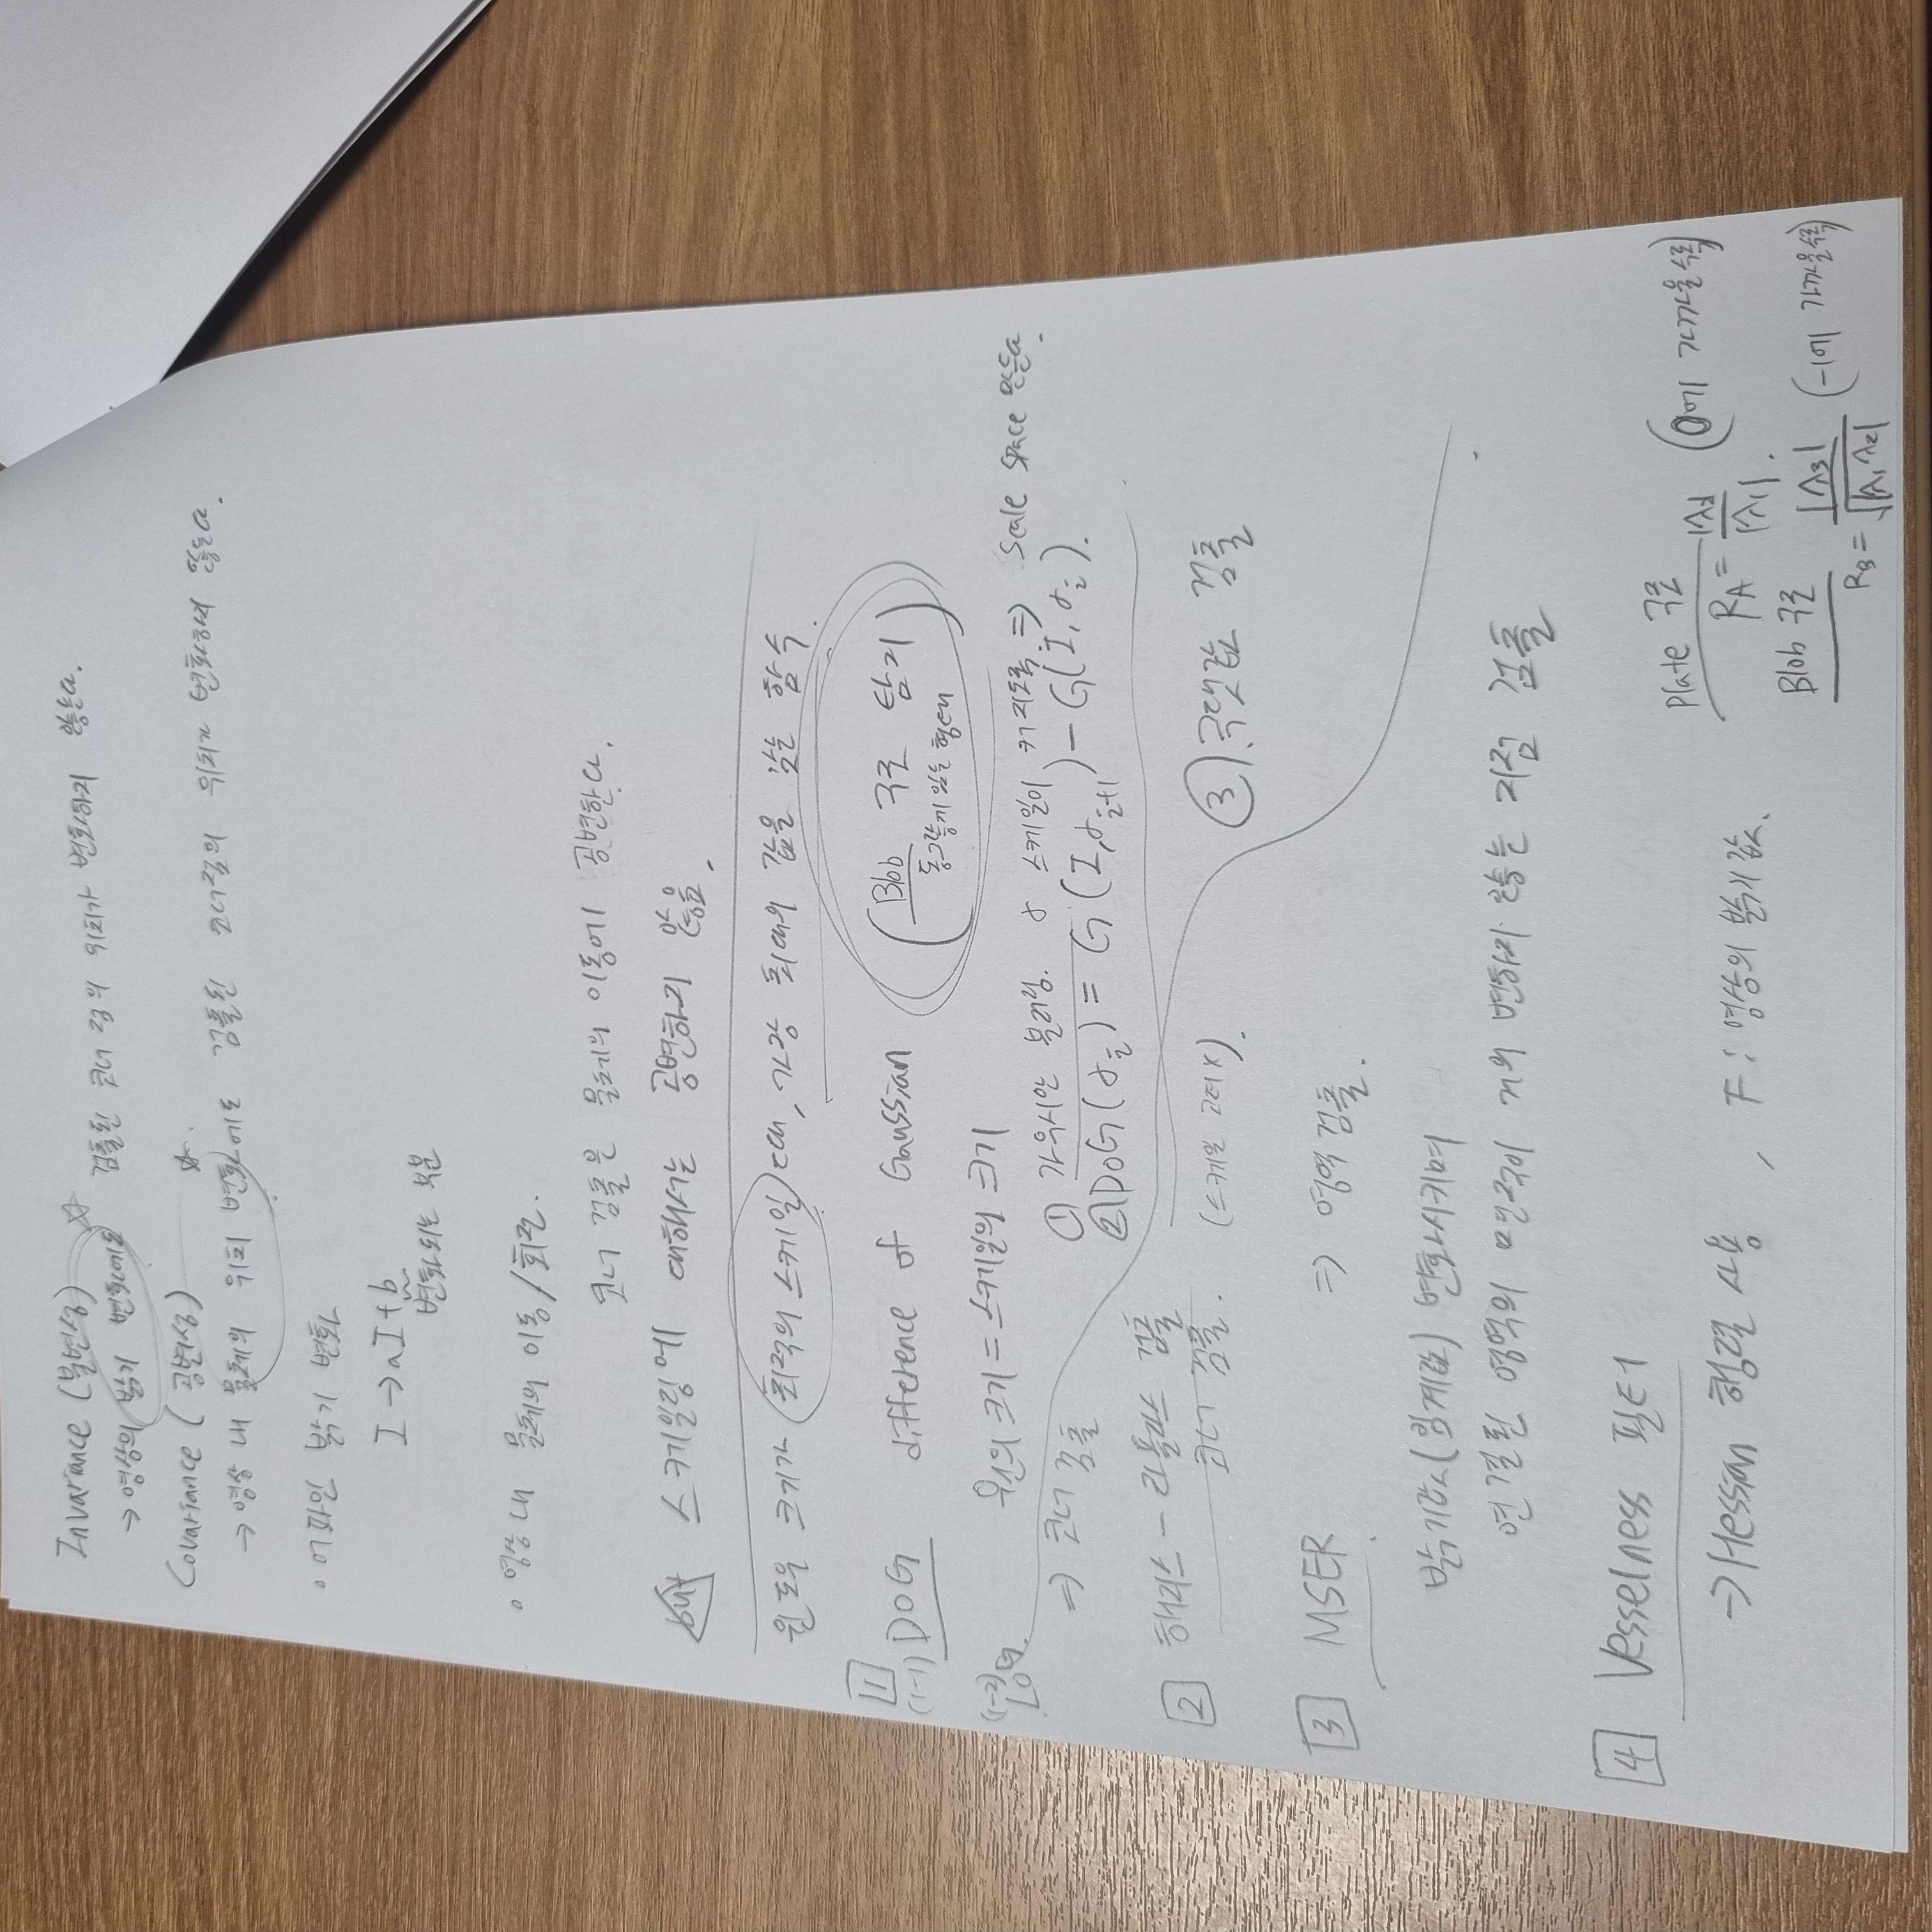 Invariance (불변성) ☆
→ 영상의 밝기 변화에도 검출된 코너 점의 위치가 변화하지 않는다.
Covariance (공변성) ☆.
→ 영상 내 물체의 위치 변화에도 검출된 코너점의 위치가 변화하지 않는다.
• 어파인 밝기 변화
I → aI + b
변화되는 부분
• 영상 내 물체의 이동/회전.
코너 검출은 물체의 이동에 공변한다.
but 스케일링에 대해서는 공변하지 않음.
윈도우 크기가 최적의 스케일 때, 가장 최대의 값을 갖는 함수.
1
(1-1) DOG difference of Gaussian (Blob 구조 탐지)
동그랗게 있는 형태
(1-2) LOG. 원의 크기 = 스케일의 크기
⇒ 코너 검출
① 가우시안 블러링. σ 스케일이 커지도록 ⇒ Scale space 만든다.
② DoG(σi) = G(I, σi+1) - G(I, σi).
2 해리스 - 라플라스 검출
코너 검출. (스케일 고려 X).
③ 극댓값 검출
3 MSER ⇒ 영역 검출.
밝기값(임계값) 변화시키며
연결된 영역의 면적이 거의 변하지 않는 지점 검출
4 Vesselness 필터
→ Hessian 행렬 사용, F : 영상의 밝기 값.
Plate 구조
RA = |λ2| / |λ1|. (0에 가까울수록)
Blob 구조
RB = |λ3| / √|λ1 λ2| (-1에 가까울수록)